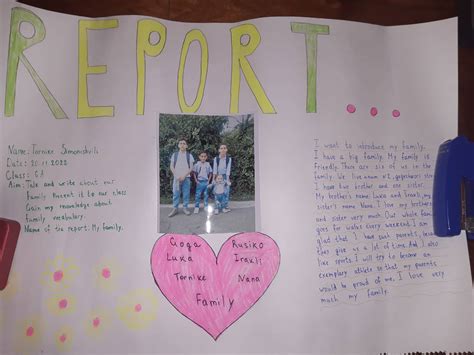 REPORT...
Name: Tornike Simonishvili
Date: 20.11.2022
Class: 6A
Aim: Talk and write about our
family Present it to our class
Gain my knowledge about
family vocabulary.
Name of the report: My family.
Goga
Rusiko
Luka
Irakli
Tornike
Nana
Family
I want to introduce my family.
I have a big family. My family is
friendly. There are six of us in the
family. We live
I have two brother and one sister.
My brother's name Luka and Irakli, my
sister's name Nana. I love my brothers
and sister very much. Our whole family
goes for walks every weekend. I am
glad that I have such parents, who
give us a lot of time. And I also
like sports. I will try to become an
exemplary athlete so that my parents
would be proud of me. I love very
much my family.